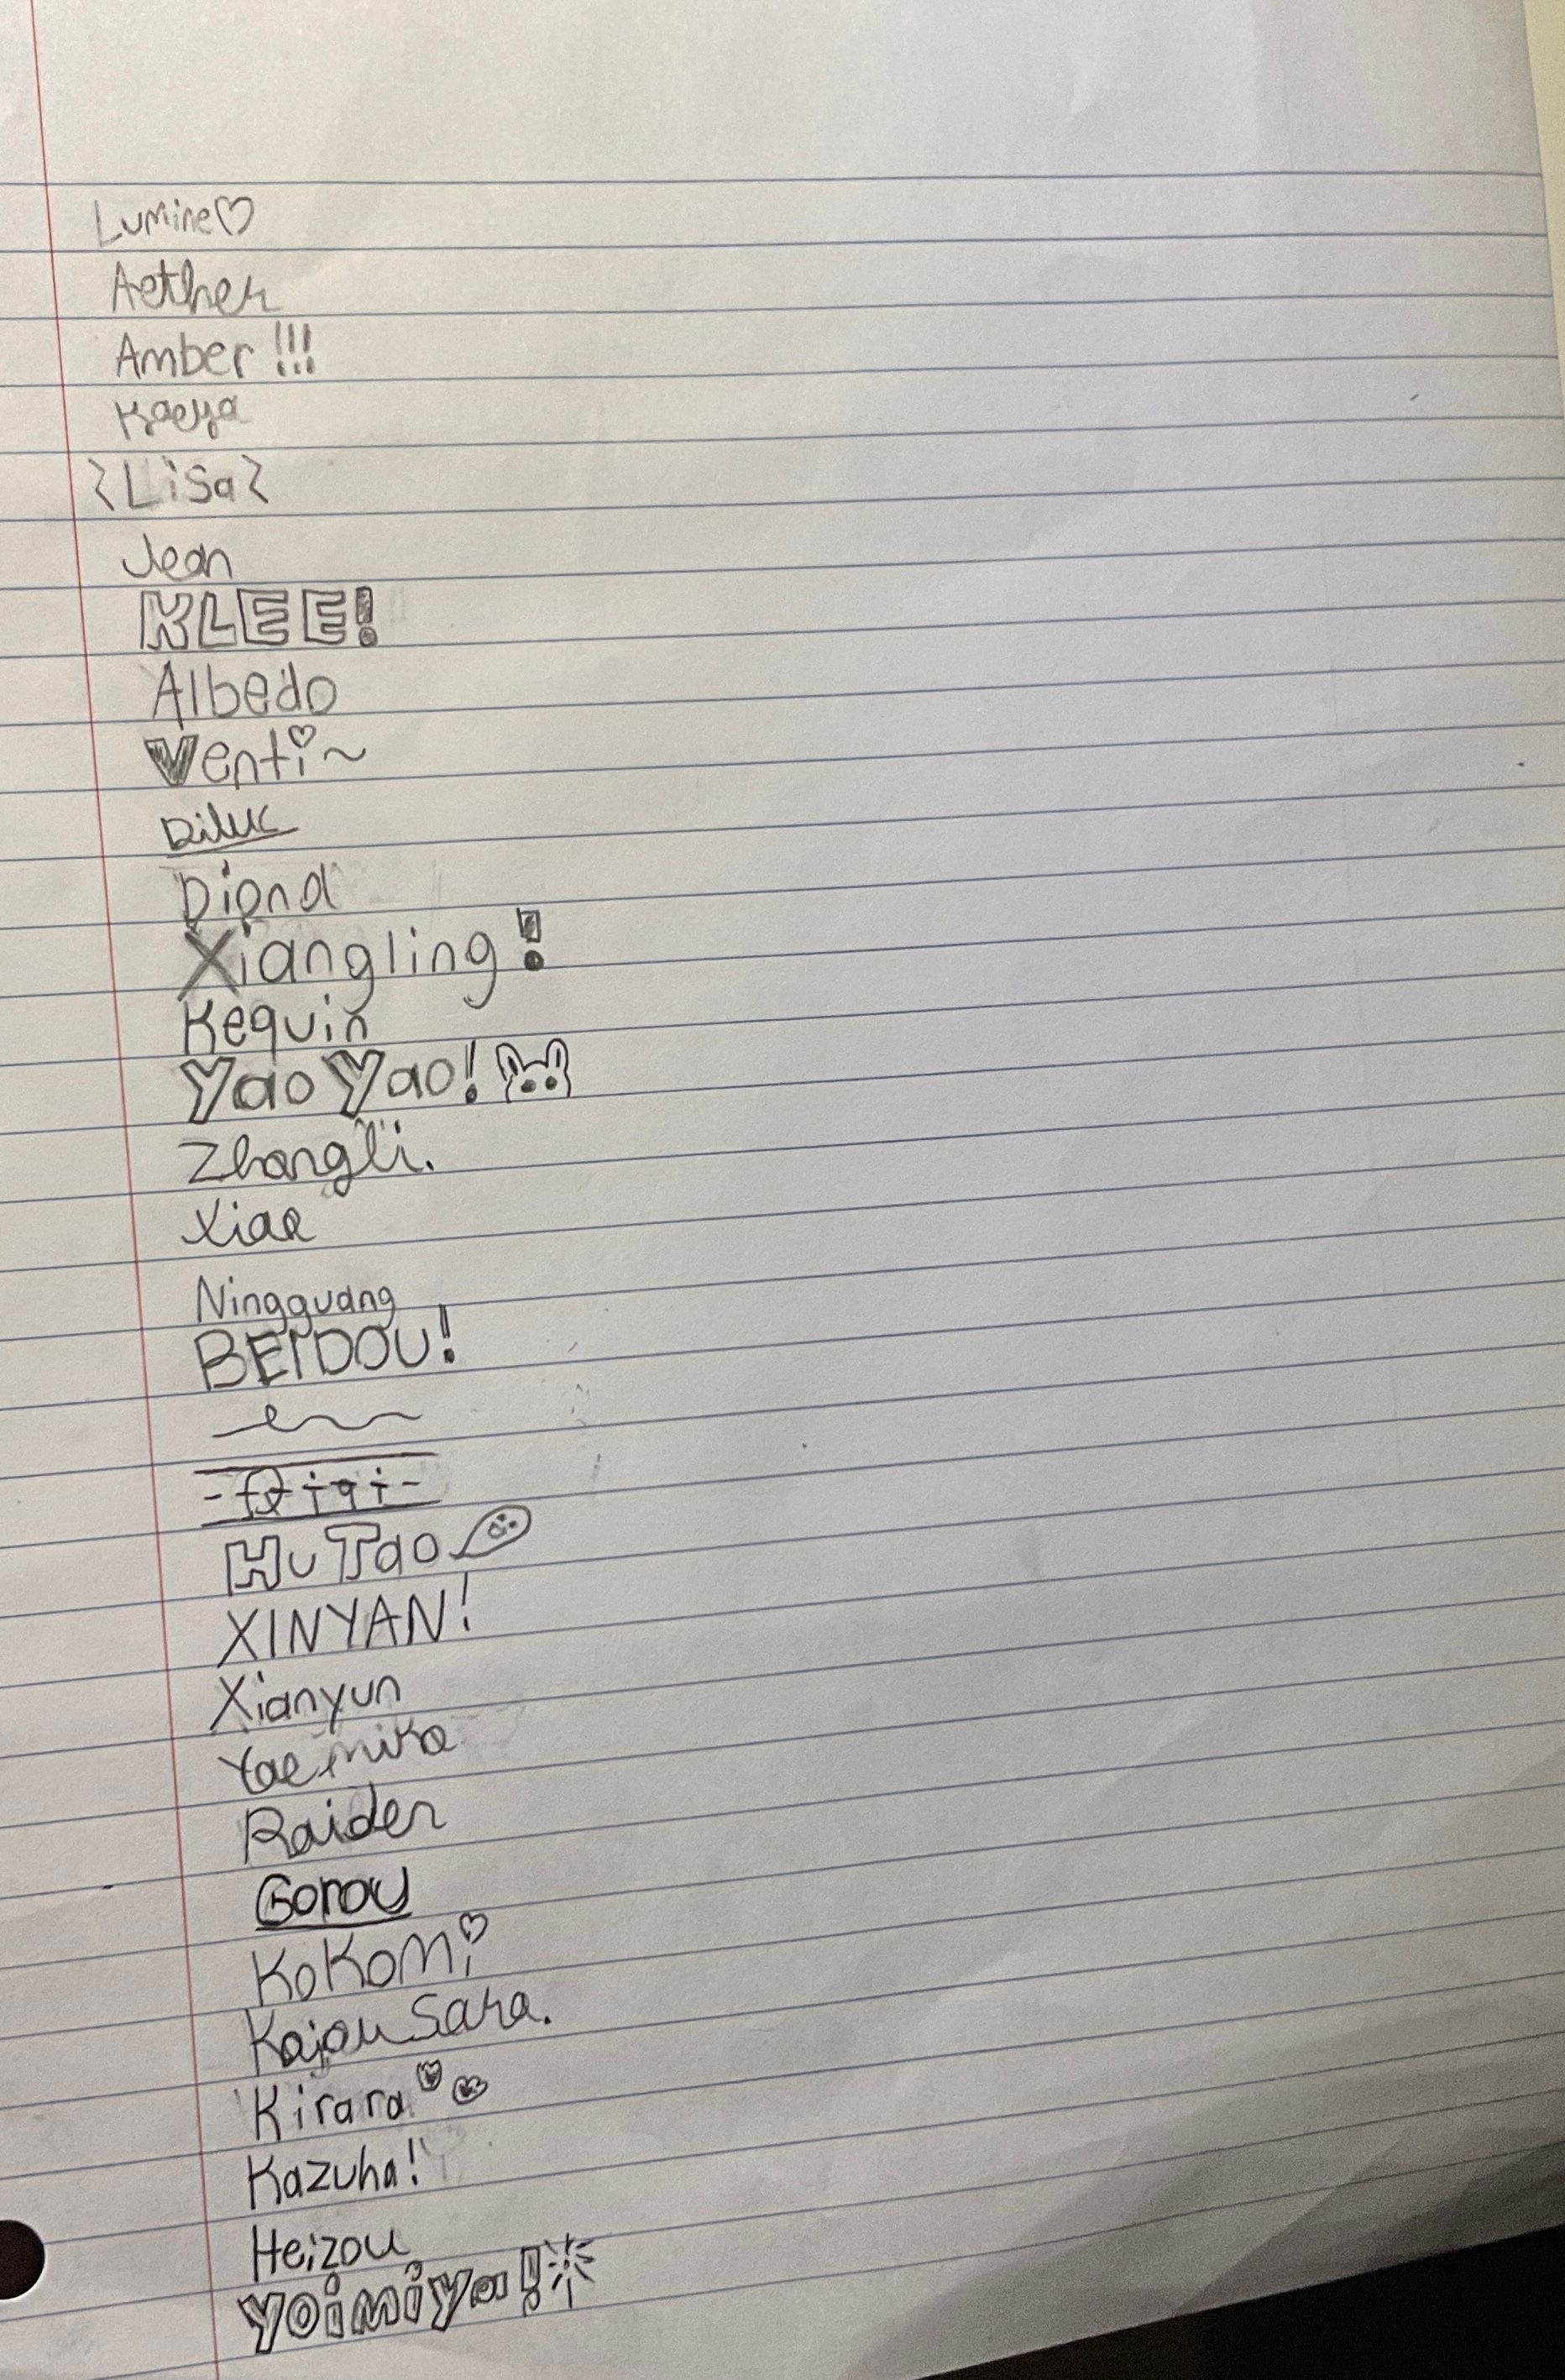 Lumine♡
Aether
Amber!!!
Kaeya
Lisa
Jean
KLEE!
Albedo
Venti~
Diluc
Diona
Xiangling!
Kequin
Yao Yao!
Zhongli.
Xiao
Ningguang
BEIDOU!
-Qiqi-
Hu Tao
XINYAN!
Xianyun
Yae miko
Raiden
Gorou
KoKoMi
Kojou Sara.
Kirara
Kazuha!
Heizou
Yoimiya!